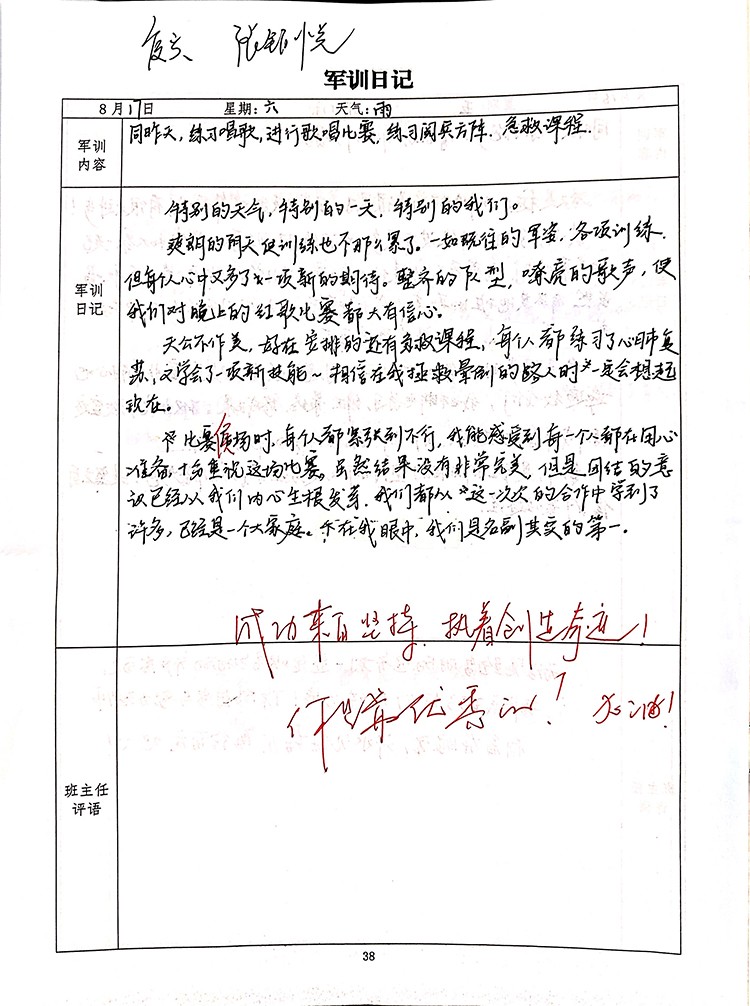 张钰悦
军训日记
8月17日 星期:六 天气:雨
军训内容
同昨天,练习唱歌,进行歌唱比赛,练习阅兵方阵,急救课程.
军训日记
特别的天气,特别的一天,特别的我们。
爽朗的阴天使训练也不那么累了。一如既往的军姿,各项训练,
但每个人心中又多了一项新的期待。整齐的队型,嘹亮的歌声,使
我们对晚上的红歌比赛都大有信心。
天公不作美,好在安排的还有急救课程,每个人都练习了心肺复
苏,又学会了一项新技能~相信在我拯救晕倒的路人时一定会想起
现在。
比赛候场时,每个人都紧张到不行,我能感受到每一个人都在用心
准备,十分重视这场比赛。虽然结果没有非常完美,但是团结的意
识已经从我们内心生根发芽,我们都从这一次次的合作中学到了
许多,已经是一个大家庭。在我眼中,我们是名副其实的第一。
成功来自坚持,执着创造奇迹!
你是最优秀的!
班主任评语
38